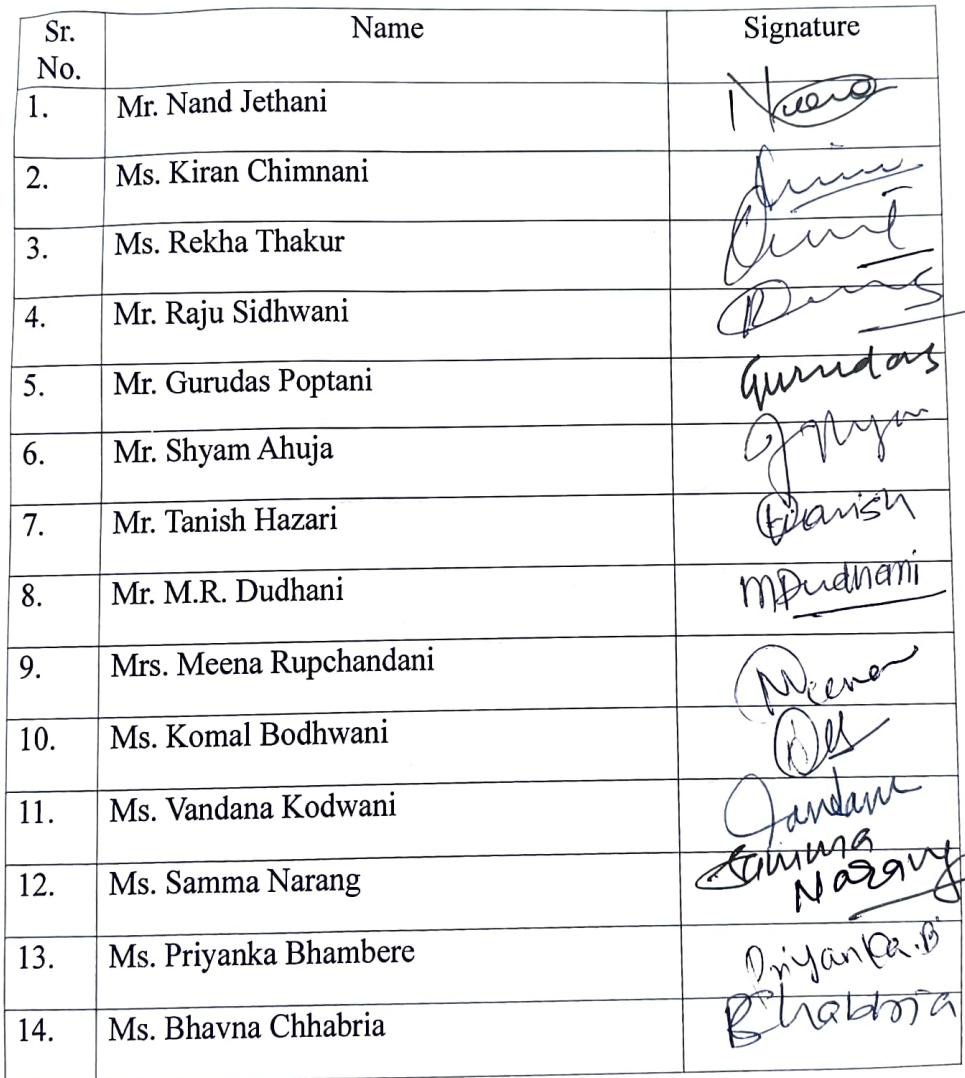 Sr. No. Name Signature
1. Mr. Nand Jethani
2. Ms. Kiran Chimnani
3. Ms. Rekha Thakur
4. Mr. Raju Sidhwani
5. Mr. Gurudas Poptani Gurudas
6. Mr. Shyam Ahuja
7. Mr. Tanish Hazari
8. Mr. M.R. Dudhani MDudhani
9. Mrs. Meena Rupchandani Meena
10. Ms. Komal Bodhwani
11. Ms. Vandana Kodwani
12. Ms. Samma Narang Samma Narang
13. Ms. Priyanka Bhambere Priyanka.B
14. Ms. Bhavna Chhabria BChabbria